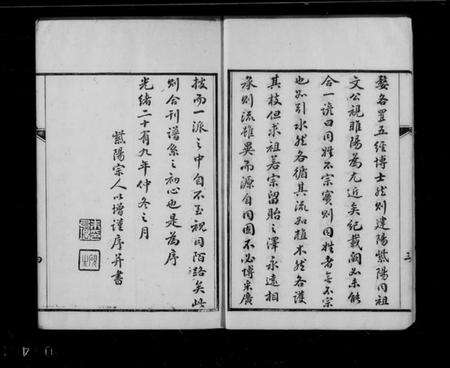 婺各置五經博士然則建陽紫陽同祖
文公視睢陽為尤近矣紀載闕如未能
合一譜曰同姓不宗實則同姓者無不宗
也如引水然各循其流如植木然各護
其枝但求祖若宗留貽之澤永遠相
承則流雖異而源自同固不必博采廣
三
援而一派之中自不至視同陌路矣此
則合刊譜系之初心也是為序
光緒二十有九年仲冬之月
紫陽宗人以增謹序并書
四